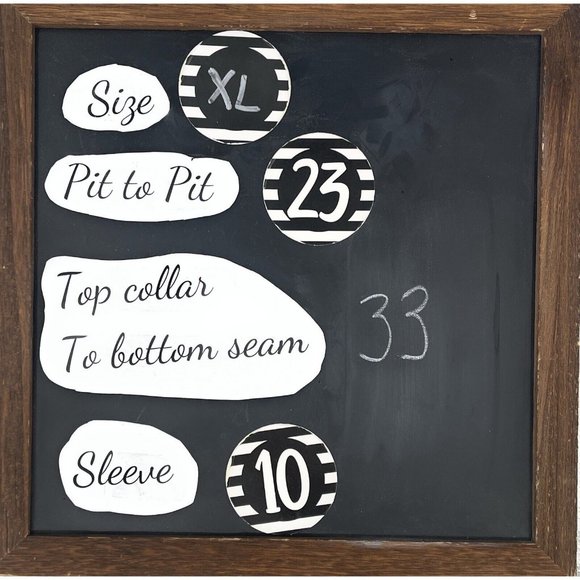 Size XL
Pit to Pit 23
Top collar
To bottom seam 33
Sleeve 10